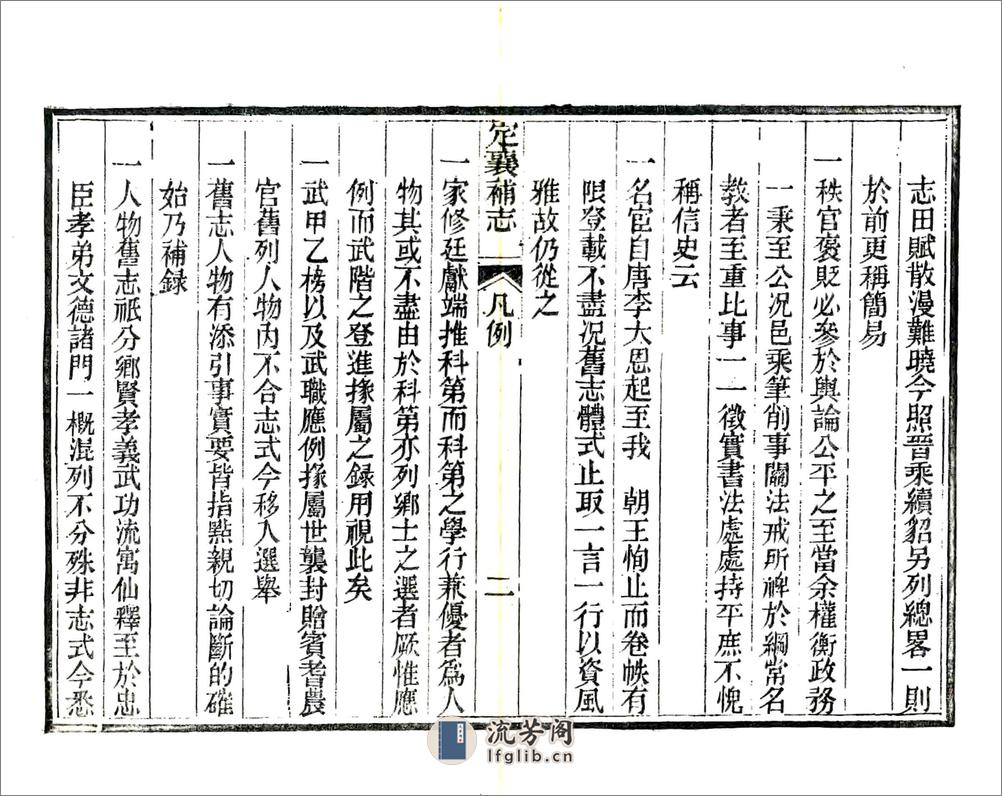 志田賦散漫難曉今照晉乘續貂另列總畧一則
於前更稱簡易
一秩官褒貶必參於輿論公平之至當余權衡政務
一秉至公況邑乘筆削事關法戒所裨於綱常名
教者至重比事一一徵實書法處處持平庶不愧
稱信史云
一名宦自唐李大恩起至我　朝王恂止而卷帙有
限登載不盡況舊志體式止取一言一行以資風
雅故仍從之
定襄補志　凡例　二
一家修廷獻端推科第而科第之學行兼優者爲人
物其或不盡由於科第亦列鄉士之選者厥惟應
例而武階之登進掾屬之録用視此矣
一武甲乙榜以及武職應例掾屬世襲封贈賓耆農
官舊列人物內不合志式今移入選舉
一舊志人物有添引事實要皆指點親切論斷的確
始乃補録
一人物舊志祇分鄉賢孝義武功流寓仙釋至於忠
臣孝弟文德諸門一概混列不分殊非志式今悉
流芳阁
lfglib.cn